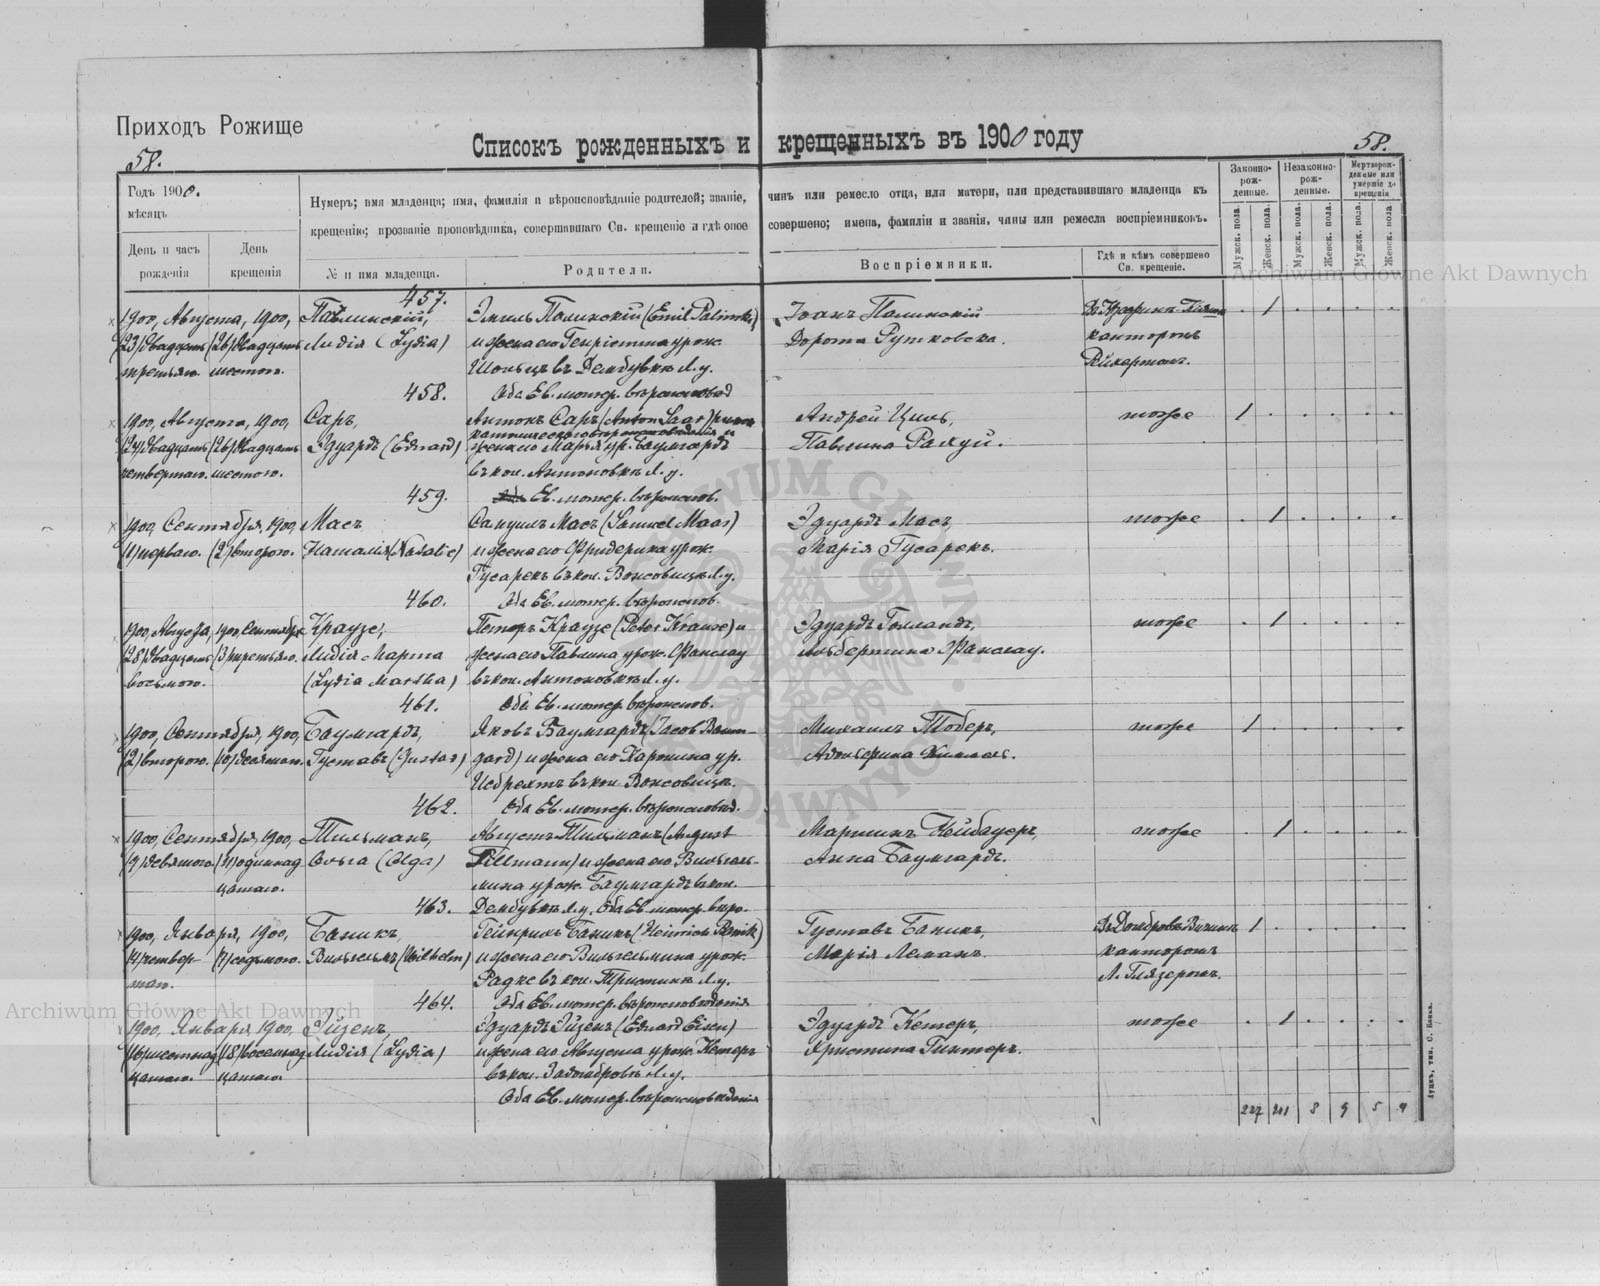 Приходъ Рожище
58.
Списокъ рожденныхъ и крещенныхъ въ 1900 году
58.
Годъ 1900.
мѣсяцъ
День и часъ рожденія
День крещенія
Нумеръ; имя младенца; имя, фамилія и вѣроисповѣданіе родителей; званіе, чинъ или ремесло отца, или матери, или представившаго младенца къ
крещенію; прозваніе проповѣдника, совершавшаго Св. крещеніе и гдѣ оное совершено; имена, фамиліи и званія, чины или ремесла воспріемниковъ.
№ и имя младенца.
Родители.
Воспріемники.
Гдѣ и кѣмъ совершено Св. крещеніе.
Законно-рож-денные.
Незаконно-рож-денные.
Мертворож-денные или умершіе до крещенія
Мужск. пола.
Женск. пола.
Мужск. пола.
Женск. пола.
Мужск. пола.
Женск. пола.
457.
1900, Августа, 1900, Павлинскій, Эмиль Полинскій (Emil Palinski) Іоанъ Палинскій
(23) двадцать (26) двадцать Лидія (Lydia) и жена его Генріетта урож. Дорота Рутковска. канторомъ
третьяго шестого. въ Дембувкѣ Л. у. Рейхертомъ.
458. Оба Ев. лютер. вѣроисповѣд
1900, Августа, 1900, Саръ, Антонъ Саръ (Anton Saar) Андрей Циль, тоже 1
(24) двадцать (26) двадцать Эдуардъ (Eduard) жена его Марья ур. Баумгардъ Павлина Радуй.
четвертаго. шестого. въ кол. Антоновкѣ Л. у.
459. Ев. лютер. вѣроисповѣд.
1900, Сентября, 1900, Масъ Самуилъ Масъ (Samuel Maas) Эдуардъ Масъ, тоже 1
(1) перваго. (2) второго. Наталія (Natalie) и жена его Фридерика урож. Марія Гусарекъ.
Гусарекъ въ кол. Вонсовицъ Л. у.
460. Оба Ев. лютер. вѣроиспов.
1900, Августа, 1900, Сентября Краузе, Петеръ Краузе (Peter Krause) и Эдуардъ Голландъ, тоже 1
(28) двадцать (3) третьяго. Лидія Марта жена его Павлина урож. Фанслау Альбертина Фанслау.
восьмого. (Lydia Martha) въ кол. Антоновкѣ Л. у.
461. Оба Ев. лютер. вѣроиспов.
1900, Сентября, 1900, Баумгардъ, Яковъ Баумгардъ (Jacob Baum- Михаилъ Тоберъ, тоже 1
(2) второго. (10) десятаго. Густавъ (Gustav) gard) и жена его Каролина ур.
въ кол. Вонсовицъ.
462. Оба Ев. лютер. вѣроисповѣд.
1900, Сентября, 1900, Тильманъ, Августъ Тильманъ (August Мартинъ Нейбауеръ, тоже 1
(9) девятаго (11) одиннад Ольга (Olga) Tillmann) и жена его Вильгель- Анна Баумгардъ.
цатаго. мина урож. Баумгардъ въ кол.
463. Дембувкѣ Л. у. Оба Ев. лютер. вѣро.
1900, Января, 1900, Баникъ, Гейнрихъ Баникъ (Heinrich Banik) Густавъ Баникъ, 1
(4) четвер (7) седьмого. Вильгельмъ (Wilhelm) и жена его Вильгельмина урож. Марія Леманъ. канторомъ
таго. Радке въ кол. Тристинъ Л. у. Л. Глязеромъ.
464. Оба Ев. лютер. вѣроисповѣданія
1900, Января, 1900, Эйзенъ, Эдуардъ Эйзенъ (Eduard Eisen) Эдуардъ Кетеръ, тоже 1
(16) шестнад (18) восемнад Лидія (Lydia) и жена его Августа урож. Кетеръ Христина Гинтеръ.
цатаго. цатаго. въ кол. Л. у.
Оба Ев. лютер. вѣроисповѣданія
227 211 8 9 5 4
Луцкъ, тип. С. Бокка.
Archiwum Główne Akt Dawnych
Archiwum Główne Akt Dawnych